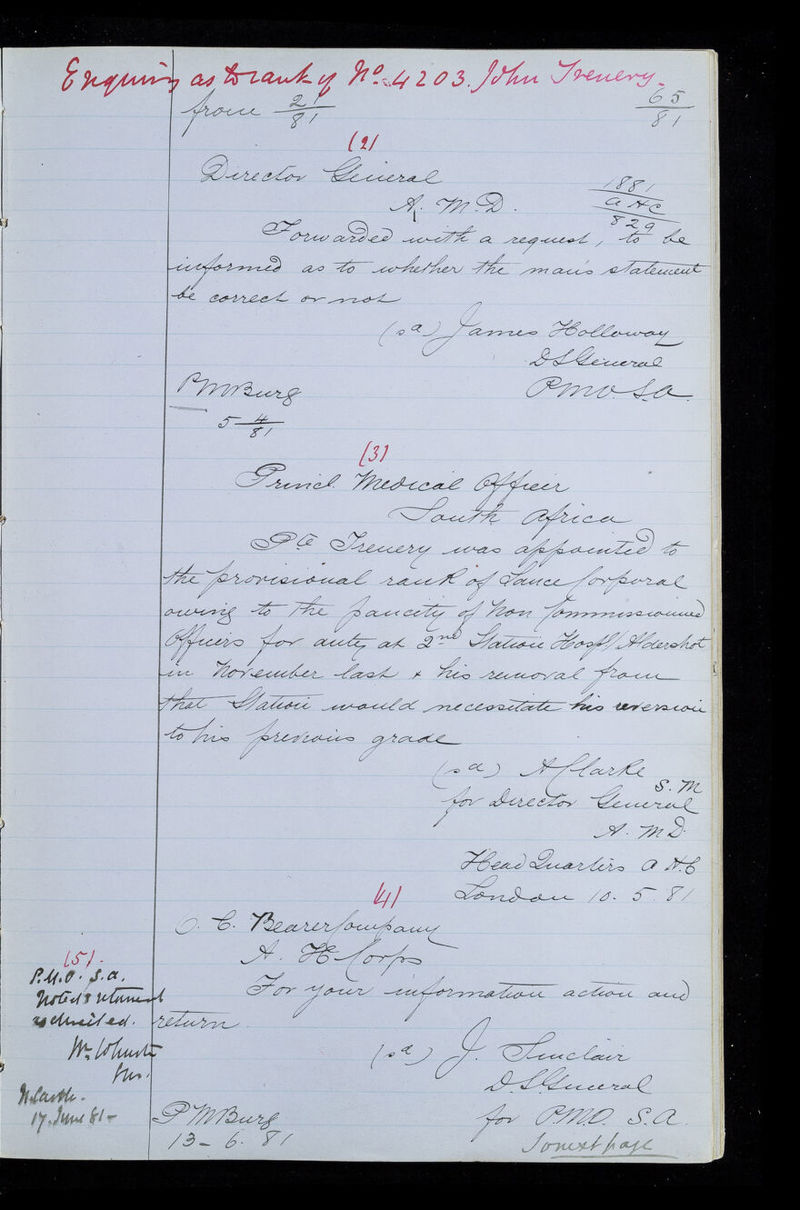 Enquiry as to rank of No. 4203. John Trenery.
from 21/81
65/81
(2)
Director General
A. M. D.
1881
A H C
829
Forwarded with a request, to be
informed as to whether the man's statement
be correct or not
(sd) James Holloway
D S General
PMO S.A.
PMBurg
5 4/81
(3)
Princl Medical Officer
South Africa
Pte Trenery was appointed to
the provisional rank of Lance Corporal
owing to the paucity of Non Commissioned
Officers for duty at 2nd Station Hospl Aldershot
in November last & his removal from
that Station would necessitate his reversion
to his previous grade
(sd) A Clarke
S. M
for Director General
A. M D.
Head Quarters A H. C
London 10. 5. 81
(4)
O. C. Bearer Company
A. H Corps
For your information action and
return
(sd) J. Sinclair
D. S. General
for P.M.O. S.A.
PMBurg
13 - 6. 81
(5).
P.M.O. S.A.
Noted & returned
as directed.
Wm Johnston
N.Castle.
17. June 81 -
To next page